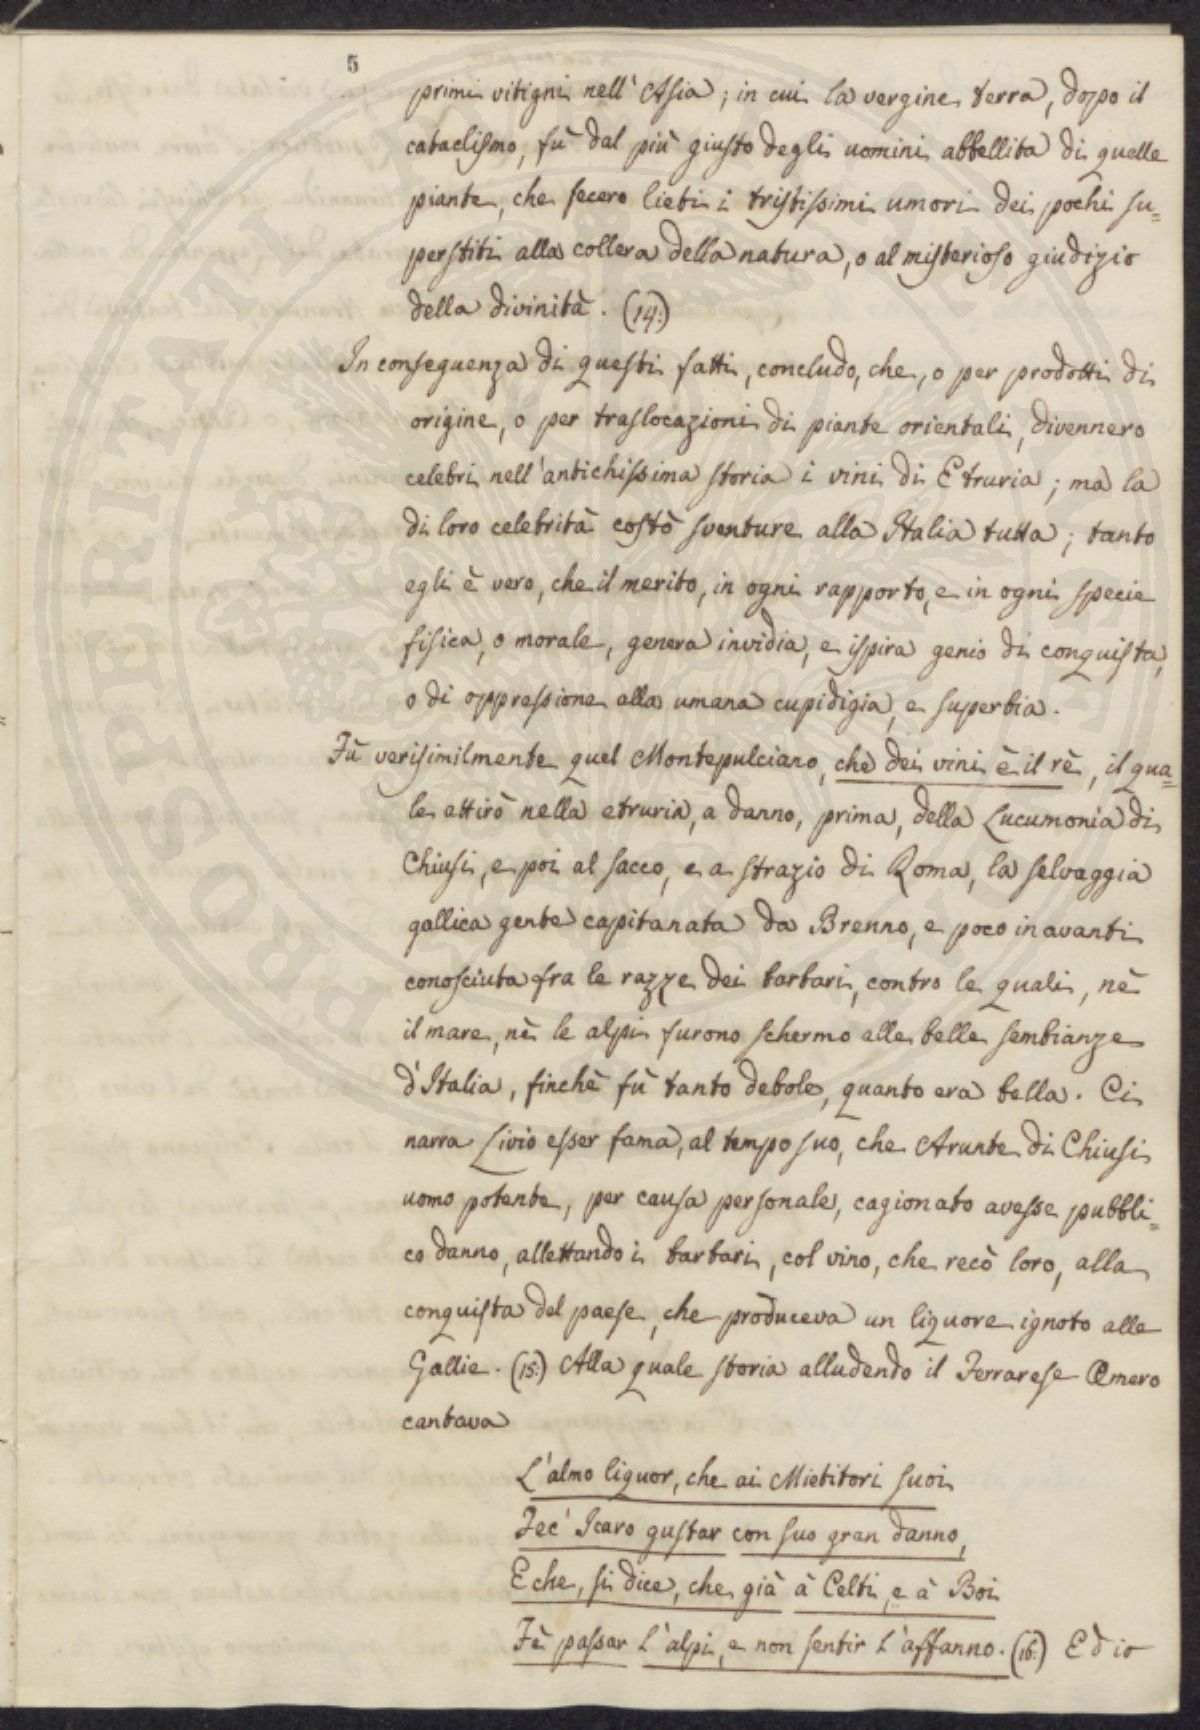 5
primi vitigni nell'Asia; in cui la vergine terra, dopo il
cataclismo, fù dal più giusto degli uomini abbellita di quelle
piante, che fecero lieti i tristissimi umori dei pochi su=
perstiti alla collera della natura, o al misterioso giudizio
della divinità. (14:)
In conseguenza di questi fatti, concludo, che, o per prodotti di
origine, o per traslocazioni di piante orientali, divennero
celebri nell'antichissima storia i vini di Etruria; mà la
di loro celebrità costò sventure alla Italia tutta; tanto
egli è vero, che il merito, in ogni rapporto, e in ogni specie
fisica, o morale, genera invidia, e ispira genio di conquista,
o di oppressione alla umana cupidigia, e superbia.
Fù verisimilmente quel Montepulciano, chè dei vini è il rè, il qua=
le attirò nella etruria, a danno, prima, della Lucumonia di
Chiusi, e poi al sacco, e a strazio di Roma, la selvaggia
gallica gente capitanata da Brenno, e poco in avanti
conosciuta fra le razze dei barbari, contro le quali, nè
il mare, nè le alpi furono schermo alle belle sembianze
d'Italia, finchè fù tanto debole, quanto era bella. Ci
narra Livio esser fama, al tempo suo, che Arunte di Chiusi
uomo potente, per causa personale, cagionato avesse pubbli=
co danno, allettando i barbari, col vino, che recò loro, alla
conquista del paese, che produceva un liquore ignoto alle
Gallie. (15:) Alla quale storia alludendo il Ferrarese Omero
cantava
L'almo liquor, che ai Mietitori suoi
Fec' Icaro gustar con suo gran danno,
E che, si dice, che già à Celti, e à Boi
Fè passar l'alpi, e non sentir l'affanno. (16:) Ed io
PROSPERITATI PUBLICAE